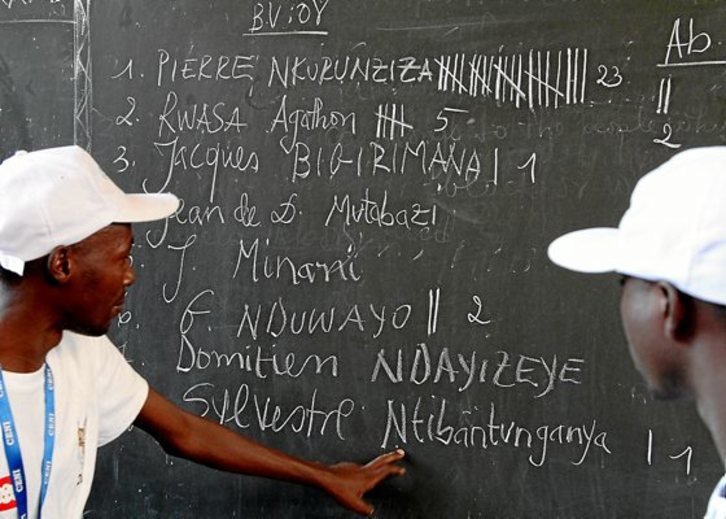 B.V: 0Y
1. PIERRE NKURUNZIZA 23
2. RWASA Agathon 5
3. Jacques BIGIRIMANA | 1
Jean de D. Mutabazi
J. Minani
6. G. NDUWAYO || 2
Domitien NDAYIZEYE
Sylvestre Ntibantunganya | 1
Ab.
||
2
CENI
CENI